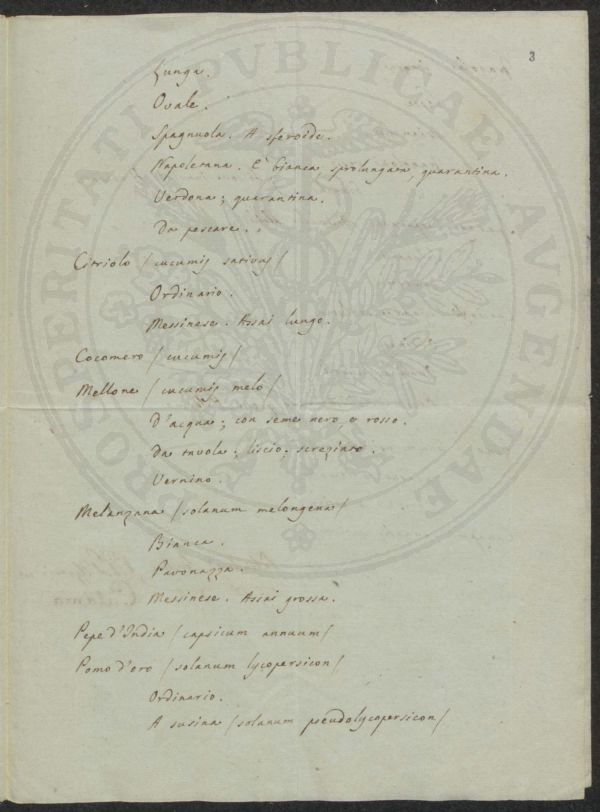 3
Lunga.
Ovale.
Spagnuola. A sferoide.
Napoletana. È bianca sprolungata quarantina.
Verdona; quarantina.
Da pescare.
Citriolo /cucumis sativus/
Ordinario.
Messinese. Assai lungo.
Cocomero /cucumis/
Mellone /cucumis melo/
D'acqua; con seme nero, o rosso.
Da tavola; liscio; screziato.
Vernino.
Melanzana /solanum melongena/
Bianca.
Pavonazza.
Messinese. Assai grossa.
Pepe d'India /capsicum annuum/
Pomo d'oro /solanum lycopersicon/
Ordinario.
A susina /solanum pseudolycopersicon/
PROSPERITATI PVBLICAE AVGENDAE